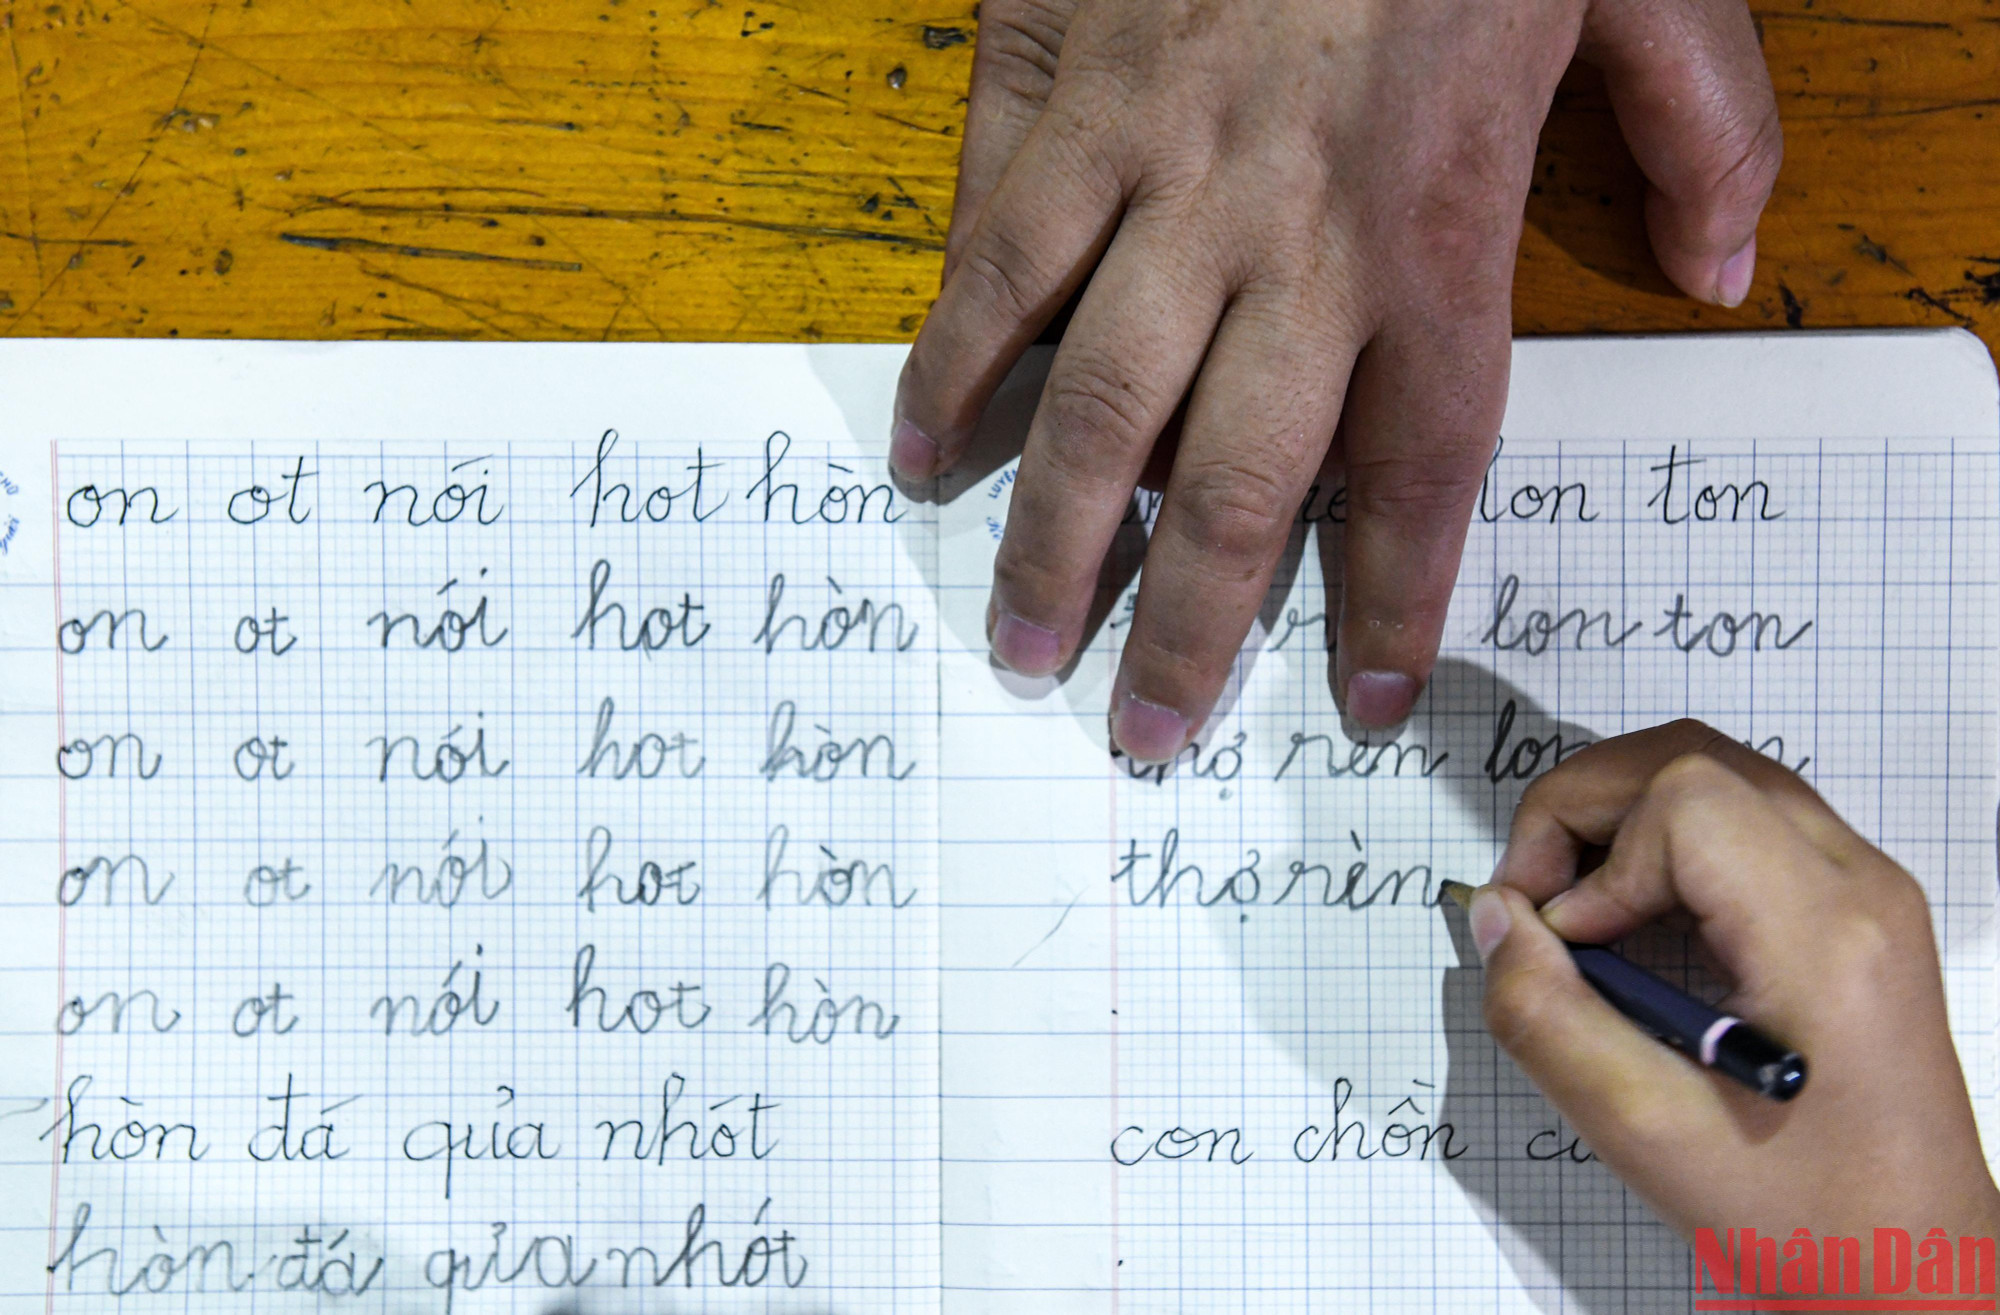 on ot nói hot hòn
on ot nói hot hòn
on ot nói hot hòn
on ot nói hot hòn
on ot nói hot hòn
hòn đá qủa nhót
hòn đá qủa nhót
lon ton
lon ton
thợ rèn
thợ rèn
con chồn
Nhân Dân